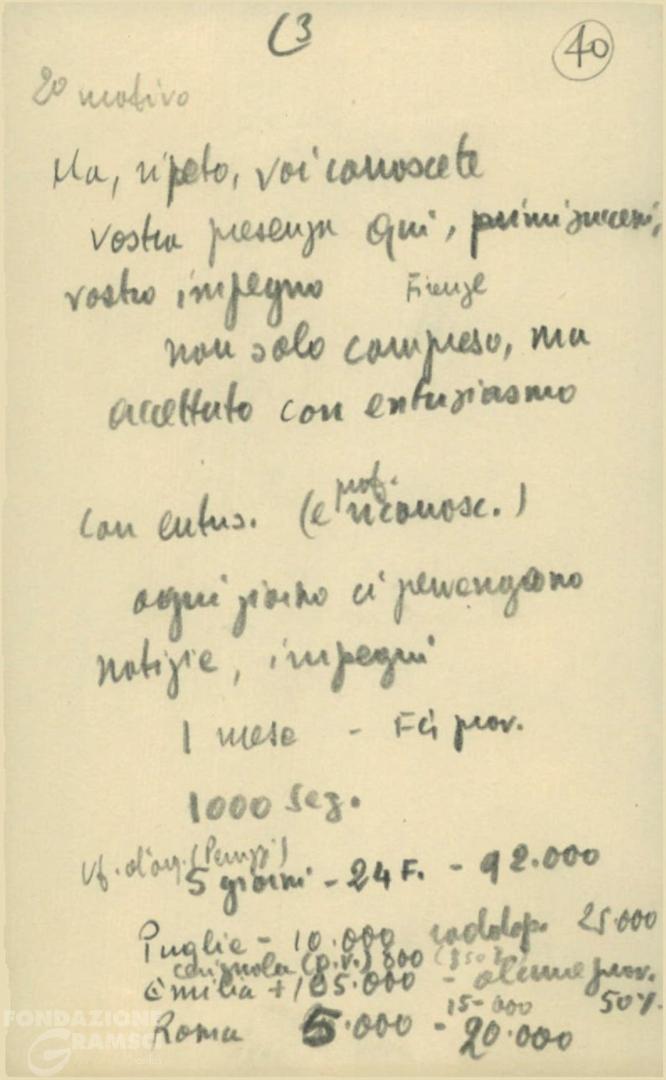 (3
40
2o motivo
Ma, ripeto, voi conoscete
vostra presenza qui, primi successi,
vostro impegno Firenze
non solo compreso, ma
accettato con entusiasmo
con entus. (e prof. riconosc.)
ogni giorno ci pervengono
notizie, impegni
1 mese - Fci prov.
1000 Sez.
Uf. d'org. (Peruzzi)
5 giorni - 24 F. - 92.000
Puglie - 10.000 raddop. 25.000
cerignola (p.v.) 800
Emilia + 105.000 - alcune prov.
15-000 50%
Roma 5.000 - 20.000
FONDAZIONE
GRAMSCI